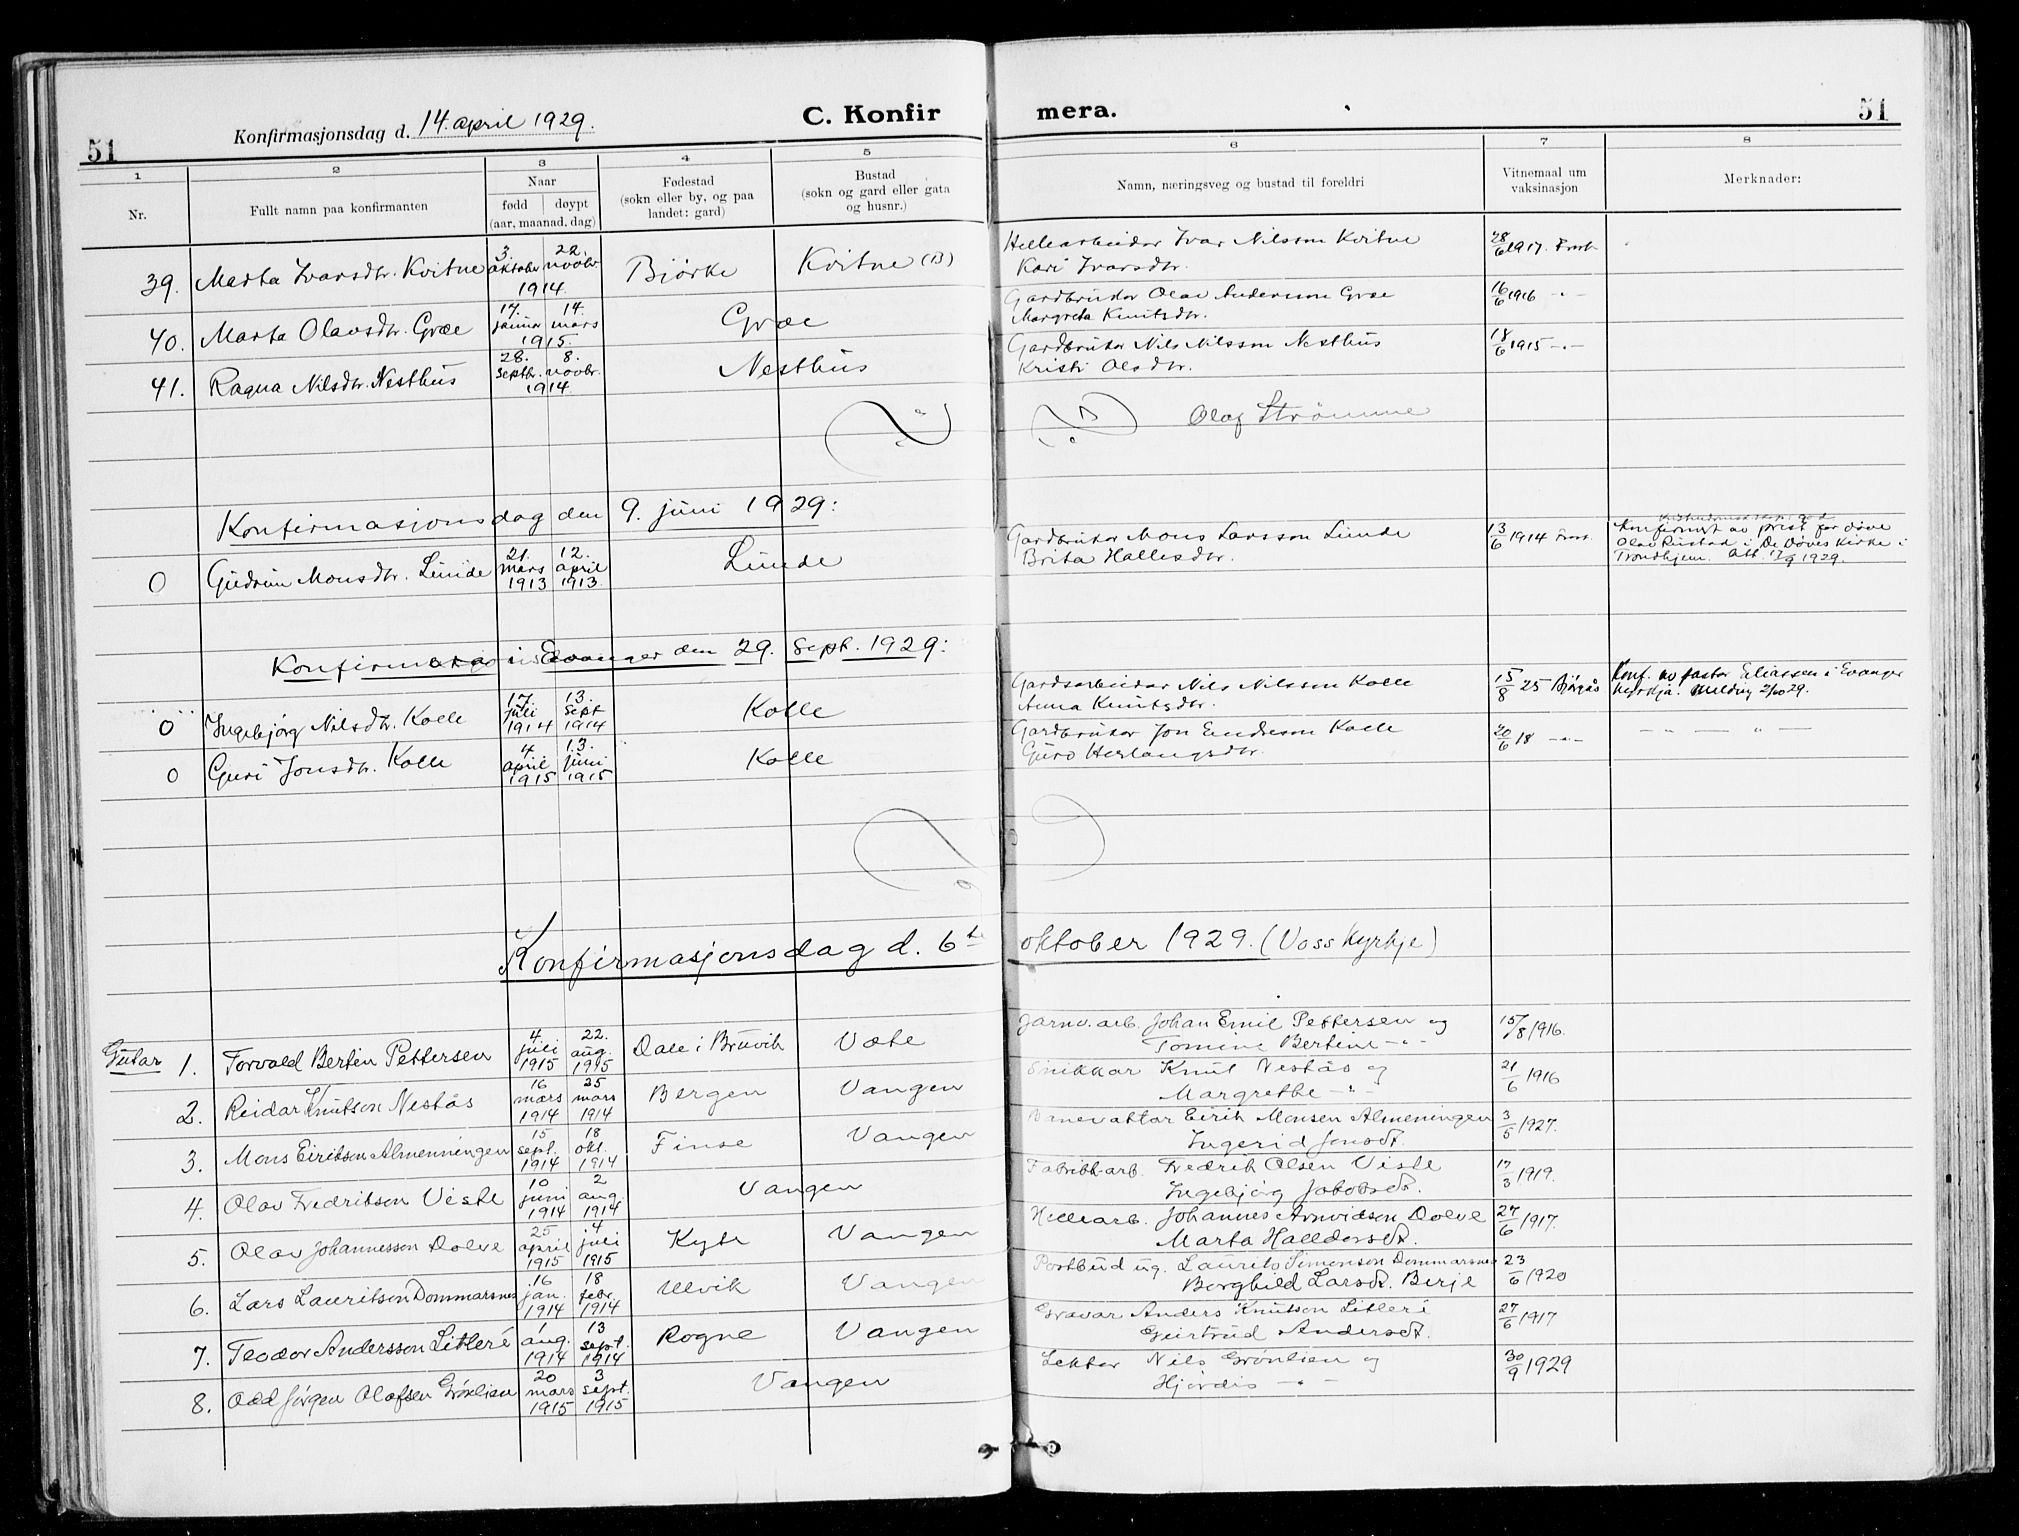 51 Konfirmasjonsdag d. 14. april 1929. C. Konfirmera. 51
1 2 3 4 5 6 7 8
Nr. Fullt namn paa konfirmanten Naar fødd døypt (aar, maanad, dag) Fødestad (sokn eller by, og paa landet: gard) Bustad (sokn og gard eller gata og husnr.) Namn, næringsveg og bustad til foreldri Vitnemaal um vaksinasjon Merknader:
39. Marta Ivarsdtr. Kvitne 3. oktober 22. novbr. 1914 Bjørke Kvitne (B) Hellearbeidar Ivar Nilsson Kvitne
Kari Ivarsdtr. 28/6 1917.
40. Marta Olavsdtr. Græe 17. januar 14. mars 1915 Græe Gardbrukar Olav Andersson Græe
Margreta Knutsdtr. 16/6 1916 -"-
41. Ragna Nilsdtr. Nesthus 28. septbr. 8. novbr. 1914 Nesthus Gardbrukar Nils Nilsson Nesthus
Kristi Olsdtr. 18/6 1915 -"-
Olaf Strømme
Konfirmasjonsdag den 9. juni 1929:
0 Gudrun Monsdtr. Lunde 21. mars 1913 12. april 1913. Lunde Gardbrukar Mons Larsson Lunde
Brita Hallesdtr. 13/6 1914 Konfirmert av prest for døve
Olav Rustad i De Døves Kirke i
Trondhjem. Att. 1929.
Konfirm i Evanger den 29. sept. 1929:
0 Ingebjørg Nilsdtr. Kolle 17. juli 1914 13. sept 1914 Kolle Gardsarbeidar Nils Nilsson Kolle
Anna Knutsdtr. 15/8 25 Bjørgås Konf. av pastor Eliassen i Evanger
kyrkja. Melding 2/10 29.
0 Guri Jonsdtr. Kolle 4. april 1915 13. juni 1915 Kolle Gardbrukar Jon Endreson Kolle
Guro Herlaugsdtr. 20/6 18 -"- - - - " -
Konfirmasjonsdag d. 6te oktober 1929. (Voss Kyrkje)
Gutar 1. Torvald Bertin Pettersen 4. juli 1915 22. aug. 1915 Dale i Bruvik Væte Jarnv.arb. Johan Emil Pettersen og
Tomine Bertine -"- 15/8 1916.
2. Reidar Knutson Nestås 16 mars 1914 25 mars 1914 Bergen Vangen Snikkar Knut Nestås og
Margrethe -"- 21/6 1916
3. Mons Eirikson Almenningen 15 sept. 1914 18 okt. 1914 Finse Vangen Banevaktar Eirik Monsen Almeningen
Ingerid Jonsdt. 3/5 1927.
4. Olav Fredrikson Viste 10 juni 1914 2 aug. 1914 Vangen Fabrikkarb. Fredrik Olsen Viste
Ingebjørg Jakobsdt. 17/3 1919.
5. Olav Johannesson Dolve 25 april 1915 4 juli 1915 Kyte Vangen Hellearb. Johannes Arnvidsen Dolve
Marta Halldorsdt. 27/6 1917.
6. Lars Lauritson Dommarsnes 16 jan. 1914 18 febr. 1914 Ulvik Vangen Postbud ug. Laurits Simonson Dommarsnes
Borghild Larsdt. Birje 23/6 1920
7. Teodor Andersson Litleré 1 aug. 1914 13 sept. 1914 Rogne Vangen Gravar Anders Knutson Litleré
Geirtrud Andersdt. 27/6 1917
8. Odd Jørgen Olafsen Grønlien 20 mars 1915 3 sept. 1915 Vangen Lektor Nils Grønlien og
Hjørdis -"- 30/9 1929